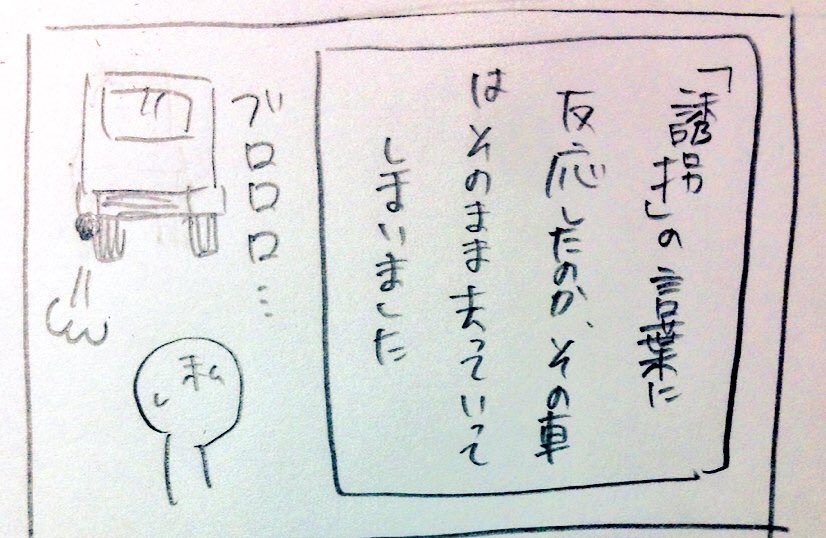 「誘拐」の言葉に
反応したのか、その車
はそのまま去っていって
しまいました
ブロロロ…
私